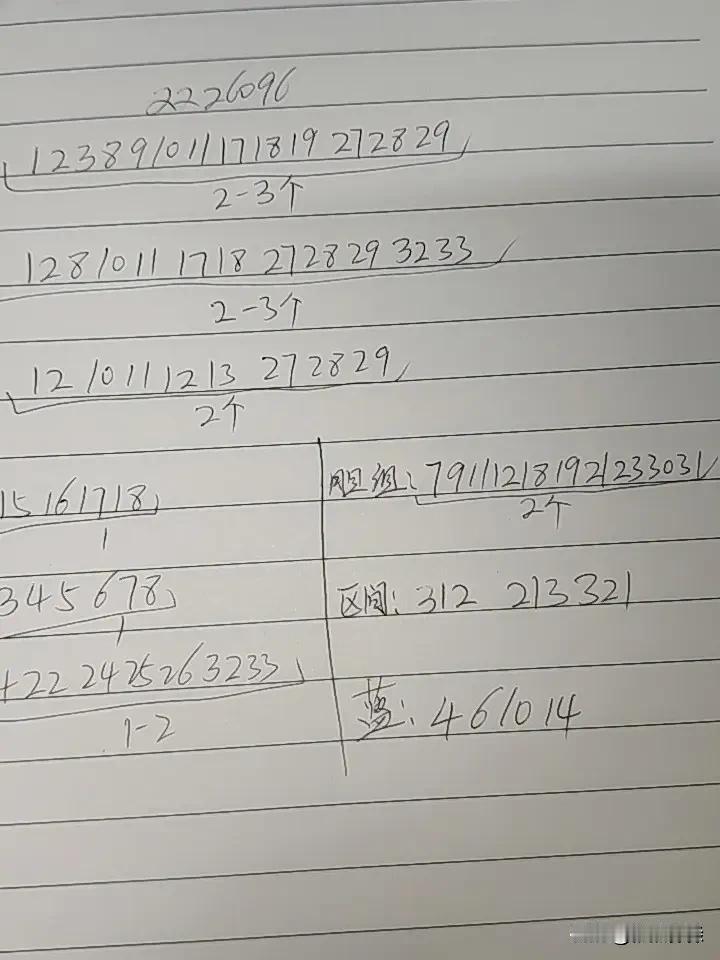 2226096
12389101117181927 28 29
2-3个
128101117182728 29 3233
2-3个
12 10 11 12 13 27 28 29
2个
15 16 17 18
1
3 4 5 6 7 8
1
22 24 25 26 32 33
1-2
胆组:7 9 11 12 18 19 21 23 30 31
2个
区间:312 213 321
蓝:4 6 10 14